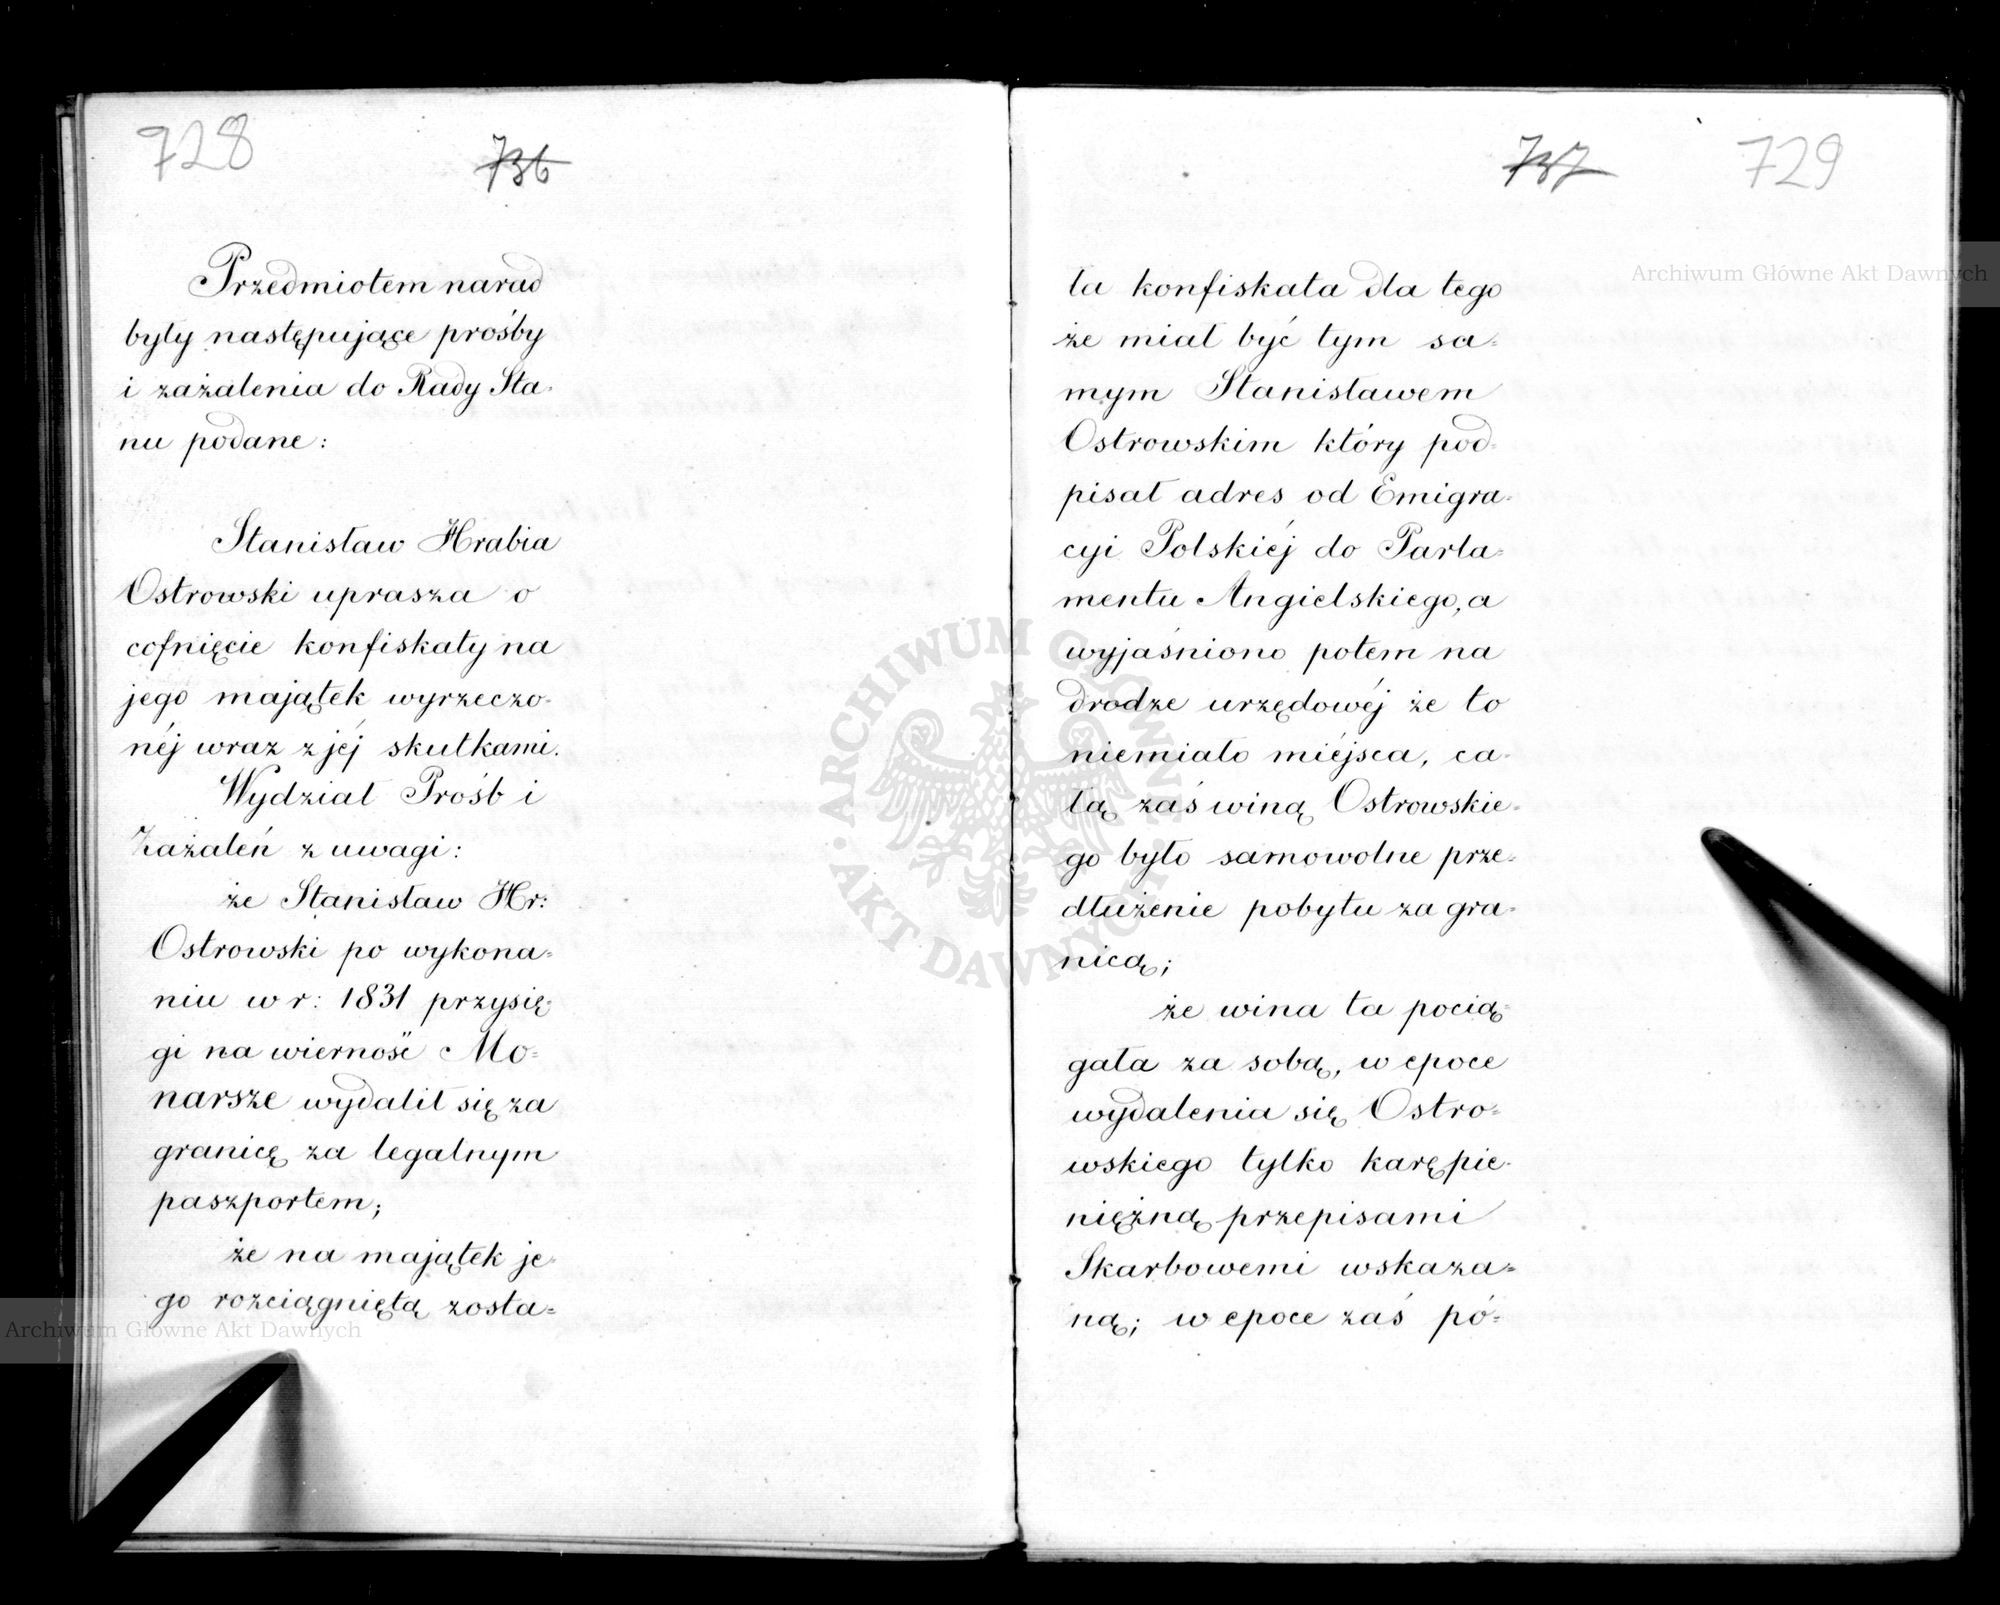 728
736
Przedmiotem narad
były następujące prośby
i zażalenia do Rady Sta=
nu podane:
Stanisław Hrabia
Ostrowski uprasza o
cofnięcie konfiskaty na
jego majątek wyrzeczo=
néj wraz z jéj skutkami.
Wydział Próśb i
Zażaleń z uwagi:
że Stanisław Hr:
Ostrowski po wykona=
niu w r: 1831 przysię=
gi na wierność Mo=
narsze wydalił się za
granicę za legalnym
paszportem;
że na majątek je=
go rozciągniętą zosta=
737
729
ła konfiskata dla tego
że miał być tym sa=
mym Stanisławem
Ostrowskim który pod=
pisał adres od Emigra=
cyi Polskiéj do Parla=
mentu Angielskiego, a
wyjaśniono potem na
drodze urzędowéj że to
niemiało miéjsca, ca=
łą zaś winą Ostrowskie=
go było samowolne prze=
dłużenie pobytu za gra=
nicą;
że wina ta pocią=
gała za sobą, w epoce
wydalenia się Ostro=
wskiego tylko karę pie=
niężną przepisami
Skarbowemi wskaza=
ną; w epoce zaś pó=
Archiwum Główne Akt Dawnych
Archiwum Główne Akt Dawnych
ARCHIWUM GŁÓWNE AKT DAWNYCH